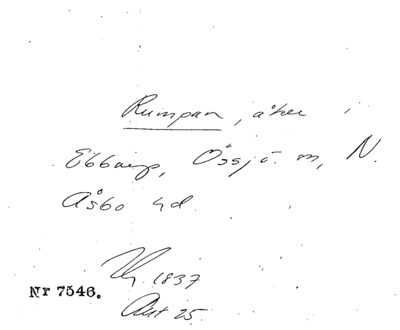 Rumpan, åker i
Ebbarp, Össjö sn, N.
Åsbo hd.
Hy. 1837
Nr 7546.
Akt 25